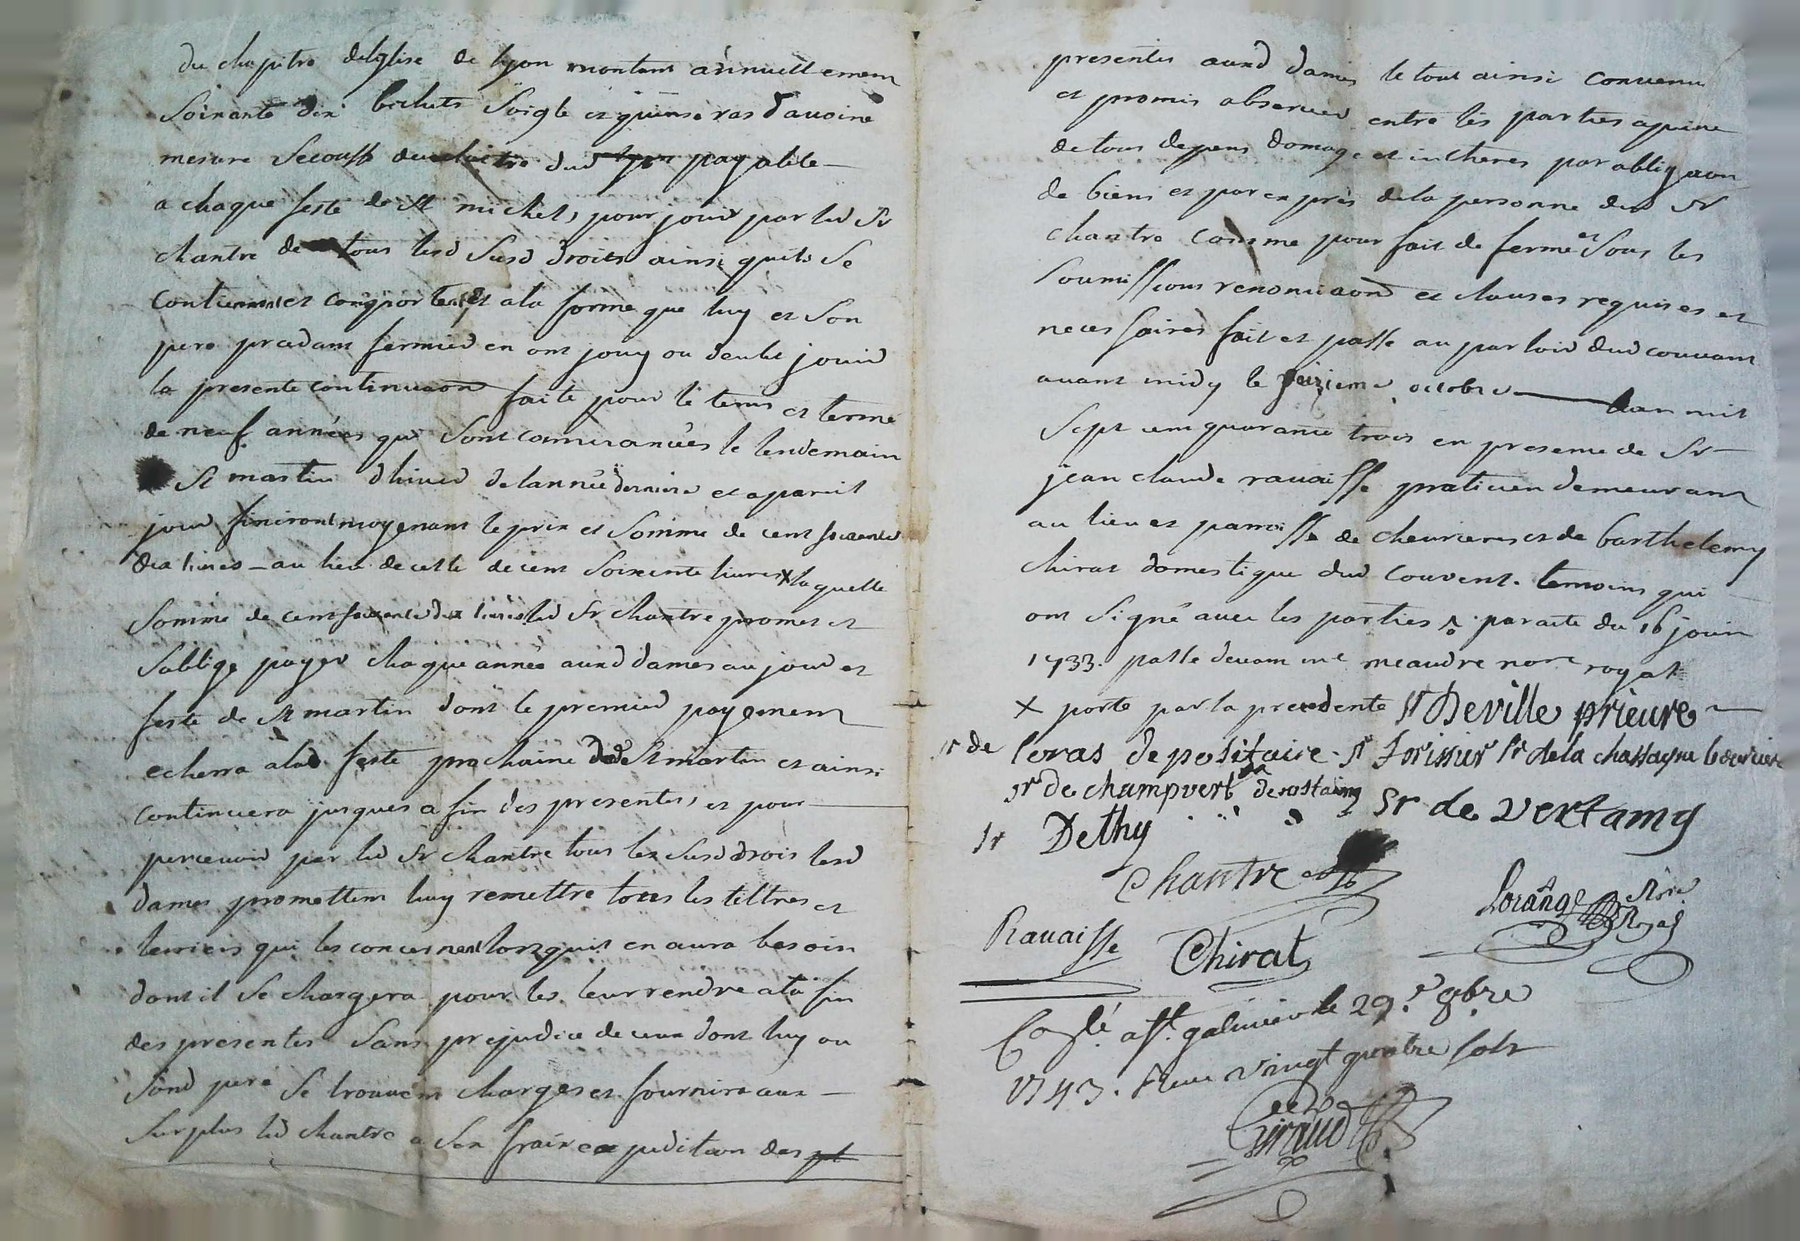 du chapitre deglise de lyon montant annuellement
Soixante dix bichets Soigle et quinse ras d'avoine
mesure Secousse du cloitre dud lyon payable
a chaque feste de St michel, pour jouir par led Sr
chantre de tous lesd Susd droits ainsi quils Se
contiennent et comportent et ala forme que luy et Son
pere precedant fermier en ont jouy ou deubt jouir
la presente continuaon faite pour le tems et terme
de neuf années qui Sont commancées le lendemain
St martin dhiver delannée derniere et apareil
jour finiront moyenant le prix et Somme de cent soixante
dix livres au lieu de celle de cent Soixente livres X laquelle
Somme de cent soixante dix livres led Sr chantre promet et
Soblige payer chaque année auxd dames au jour et
feste de St martin dont le premier payement
echerra alad feste prochaine de St martin et ainsi
continuera jusques a fin des presentes, et pour
percevoir par led Sr chantre tous les Susd drois lesd
dames promettent luy remettre tous les tiltres et
terriers qui les concernent lorsquil en aura besoin
dont il Se chargera pour les leur rendre ala fin
des presentes Sans prejudice de ceux dont luy ou
Sond pere Se trouvent charges et fournira aux
Surplus led chantre a Ses frais expedition des
presentes auxd dames le tout ainsi convenu
et promis observer entre les parties apeine
de tous depens domage et intheres par obligaon
de biens et par exprès dela personne dud Sr
chantre comme pour fait de ferme et Sous les
Soumissions renonciaons et clauses requises et
necessaires fait et passé au parloir dud couvent
avant midy le seizieme octobre lan mil
Sept cent quarante trois en presence de Sr
jean claude ravaisse praticien demeurant
au lieu et parroisse de chevrieres et de barthelemy
chirat domestique dud couvent. temoins qui
ont Signé avec les parties par acte du 16 juin
1733. passé devant me meaudre nore royal
X porté par la precedente Sr Deville prieure
sr de loras depositaire. Sr forissier Sr de la chassagne boursiere
sr de champvert de rostaing
Sr de vertamy
sr Dethy
Chantre
Lorange Nore Royal
Ravaisse Chirat
Conlé a St galmier le 29e 8bre
1743. Reçu vingt quatre sols
Giraud